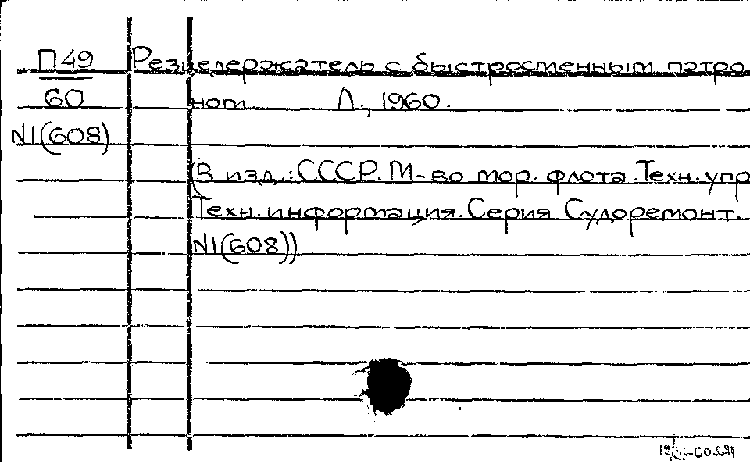 П49
60
N1(608)
Резцедержатель с быстросменным патро
ном. Л., 1960.
(В изд.: СССР. М-во мор. флота. Техн. упр
Техн. информация. Серия Судоремонт.
N1(608))